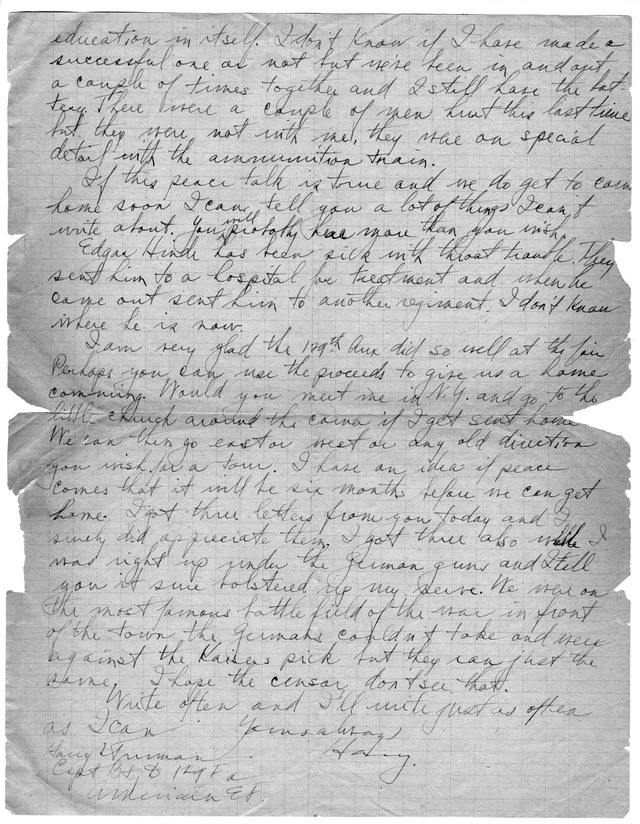 education in itself. I don't Know if I have made a
successful one or not but we've been in and out
a couple of times together and I still have the bat
tery. There were a couple of men hurt this last time
but they were not with me, they were on special
detail with the ammunition train.
If this peace talk is true and we do get to come
home soon I can tell you a lot of things I can't
write about. You will probably hear more than you wish.
Edgar Hinde has been sick with throat trouble. They
sent him to a hospital for treatment and when he
came out sent him to another regiment. I don't Know
where he is now.
I am very glad the 129th Aux did so well at the fair
Perhaps you can use the proceeds to give us a home
comming. Would you meet me in N.Y. and go to the
little church around the corner if I get sent home
We can then go east or west or any old direction
you wish for a tour. I have an idea if peace
comes that it will be six months before we can get
home. I got three letters from you today and I
surely did appreciate them. I got three also while I
was right up under the German guns and I tell
you it sure bolstered up my nerve. We were on
the most famous battle field of the war in front
of the town the Germans couldn't take and were
against the Kaisers pick but they ran just the
same. I hope the censor don't see that.
Write often and I'll write just as often
as I can Yours always
Harry Truman Harry.
Capt Bty D 129 F a
American E F.